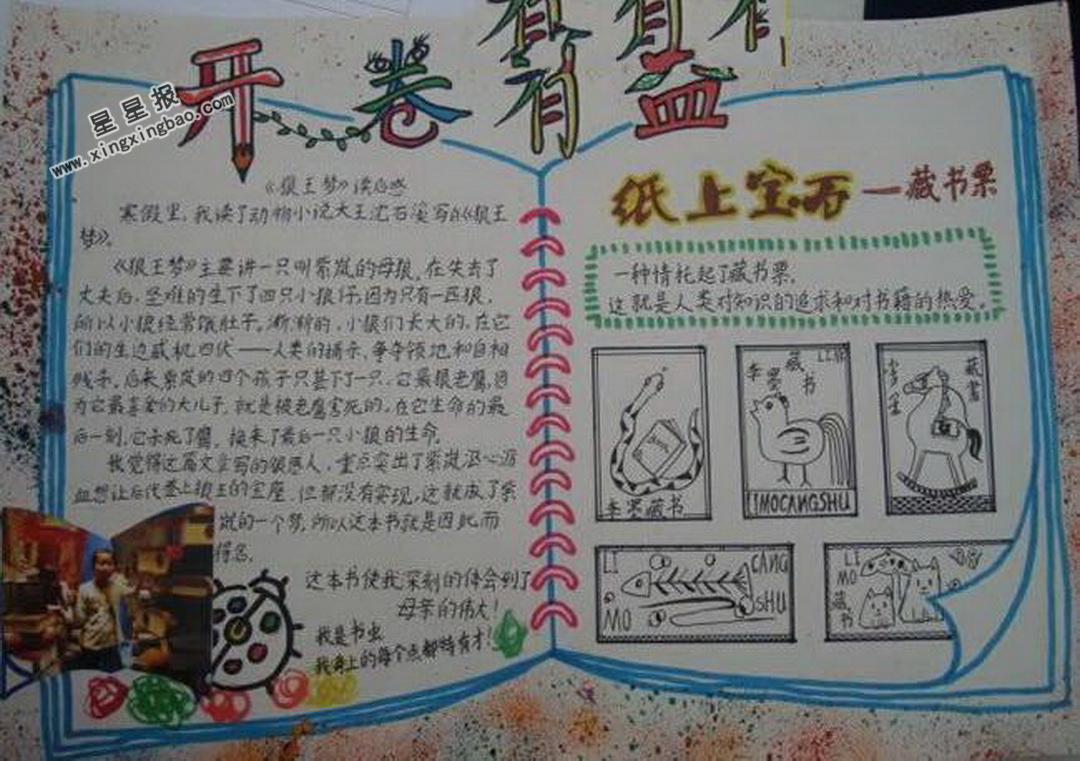 有有有
开卷有益
星星报
www.xingxingbao.com
《狼王梦》读后感
寒假里,我读了动物小说大王沈石溪写的《狼王
梦》。
《狼王梦》主要讲一只叫紫岚的母狼,在失去了
丈夫后,坚难的生下了四只小狼仔,因为只有一匹狼,
所以小狼经常饿肚子。渐渐的,小狼们长大的,在它
们的生边威机四伏——人类的捕杀、争夺领地和自相
残杀。后来紫岚的四个孩子只甚下了一只,它最狠老鹰,因
为它最喜爱的大儿子,就是被老鹰害死的,在它生命的最
后一刻,它杀死了鹰,换来了最后一只小狼的生命。
我觉得这篇文章写的很感人,重点突出了紫岚
血想让后代登上狼王的宝座。但都没有实现,这就成了紫
岚的一个梦,所以这本书就是因此而
得名。
这本书使我深刻的体会到了
母亲的伟大!
我是书虫
我身上的每个点都特有才!
纸上宝石——藏书票
一种情托起了藏书票,
这就是人类对知识的追求和对书籍的热爱。
李墨藏书
李墨藏书
LIMOCANGSHU
藏書
LI
MO
CANG
SHU
LI
MO
藏
书